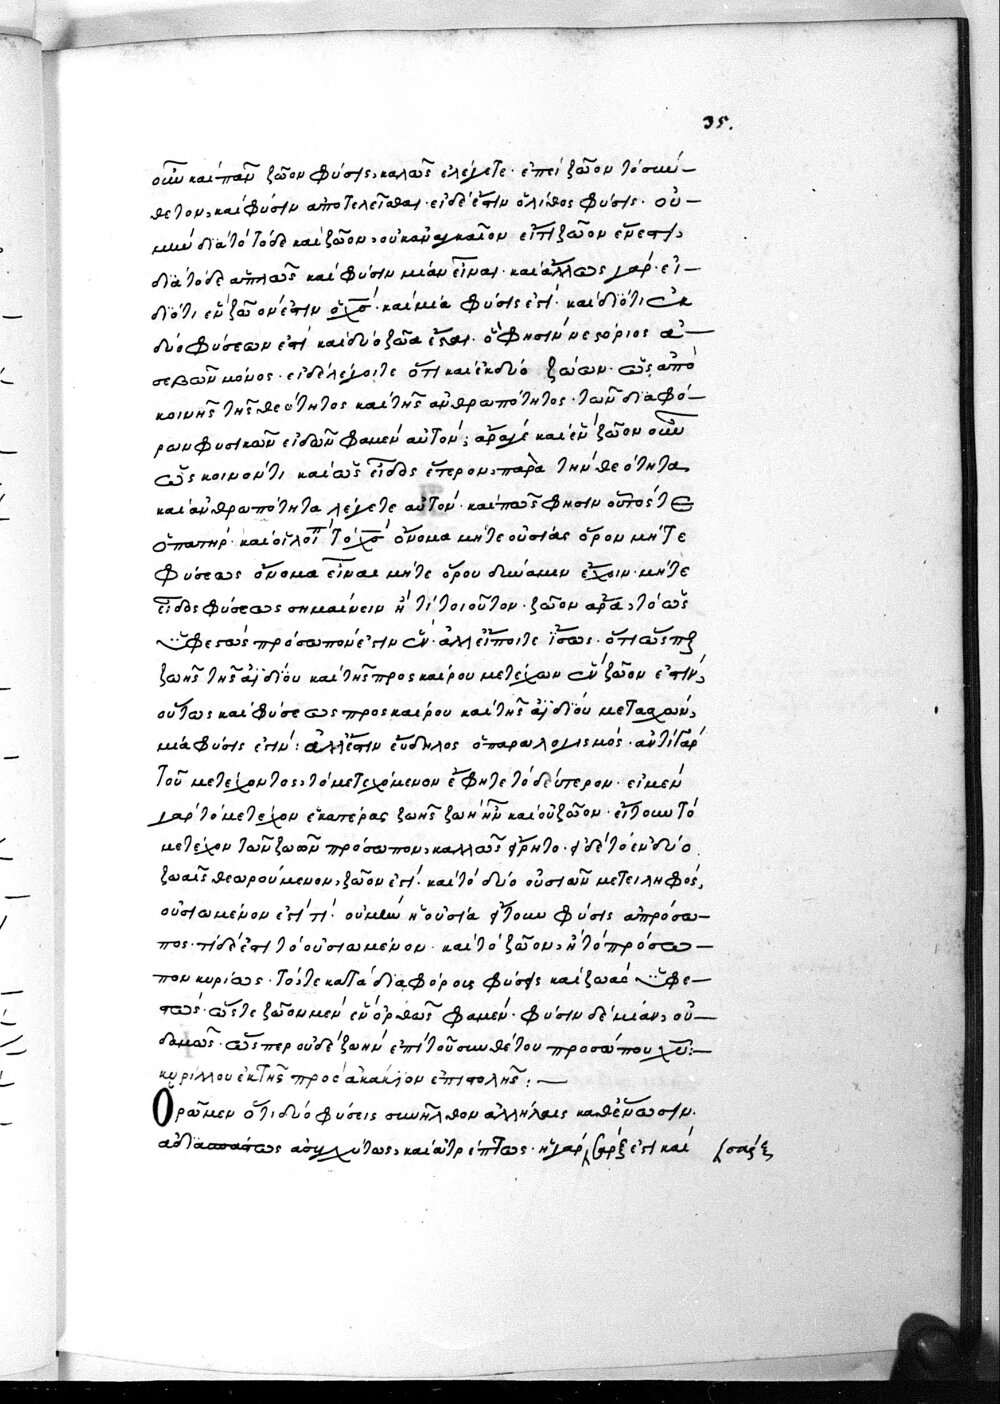 35.
οὖν καὶ πᾶν ζῶον φύσις, καλῶς ἐλέγετε· ἐπεὶ ζῶον τὸ σύν-
θετον, καὶ φύσιν ἀποτελεῖσθαι· εἰ δέ ἐστιν ὁ λίθος φύσις· οὐ-
μὴν διὰ τὸ τόδε καὶ ζῶον, οὐκ ἀναγκαῖον εἴ τι ζῶον ἕν ἐστι,
διὰ τόδε ἁπλῶς καὶ φύσιν μίαν εἶναι· καὶ ἄλλως γάρ· εἰ-
διότι ἓν ζῶόν ἐστιν ὁ χς· καὶ μία φύσις ἐστί· καὶ διότι ἐκ
δύο φύσεων ἐστὶ καὶ δύο ζῶα ἔσται· ὅ φησιν νεστόριος ἀ-
σεβῶν μόνος· εἰ δὲ λέγοιτε ὅτι καὶ ἐκ δύο ζώων· ὡς ἀπὸ
κοινῆς τῆς θεότητος καὶ τῆς ἀνθρωπότητος· τῶν διαφό-
ρων φυσικῶν εἰδῶν φαμὲν αὐτόν; ἆρά γε καὶ ἓν ζῶον οὖν
ὡς κοινόν τι καὶ ὡς εἶδος ἕτερον, παρὰ τὴν θεότητα
καὶ ἀνθρωπότητα λέγετε αὐτόν· καὶ πῶς φησιν οὗτός τε
ὁ πατὴρ· καὶ οἱ λοιπ τὸ χς ὄνομα μήτε οὐσίας ὅρον μήτε
φύσεως ὄνομα εἶναι μήτε ὅρου δύναμιν ἔχειν· μήτε
εἶδος φύσεως σημαίνειν ἤ τι τοιοῦτον· ζῶον ἆρα, τὸ ὡς
ὑφεστὼς πρόσωπόν ἐστιν ἕν· ἀλλ' εἴποιτε ἴσως· ὅτι ὥσπερ
ζωῆς τῆς ἀϊδίου καὶ τῆς προσκαίρου μετέχων ἓν ζῶον ἐστίν,
οὕτως καὶ φύσεως προσκαίρου καὶ τῆς ἀϊδίου μετασχών,
μία φύσις ἐστίν: ἀλλ' ἔστιν εὔδηλος ὁ παραλογισμός· ἀντὶ γὰρ
τοῦ μετέχοντος, τὸ μετεχόμενον ἔφητε τὸ δεύτερον· εἰ μὲν
γὰρ τὸ μετέχον ἑκατέρας ζωῆς ζωὴν ἦν καὶ οὐ ζῶον· εἴτουν τὸ
μετέχον τῶν ζωῶν πρόσωπον, καλῶς εἴρητο· εἰ δὲ τὸ ἐν δύο
ζωαῖς θεωρούμενον, ζῶον ἐστί· καὶ τὸ δύο οὐσιῶν μετειληφός,
οὐσιωμένον ἐστί τι· οὐ μὴν ἡ οὐσία ἤτουν φύσις ἀπρόσω-
πος· τί δέ ἐστι τὸ οὐσιωμένον· καὶ τὸ ζῶον, ἢ τὸ πρόσω-
πον κυρίως· τό, τε κατὰ διαφόρους φύσεις καὶ ζωὰς ὑφε-
στώς· ὥστε ζῶον μὲν ἓν ὀρθῶς φαμέν· φύσιν δὲ μίαν, οὐ-
δαμῶς· ὥσπερ οὐδὲ ζωὴν ἐπὶ τοῦ συνθέτου προσώπου χυ:-
κυρίλλου ἐκ τῆς πρὸς ἀκάκιον ἐπιστολῆς:-
Ὁρῶμεν ὅτι δύο φύσεις συνῆλθον ἀλλήλαις καθ' ἕνωσιν.
ἀδιασπάστως ἀσυγχύτως, καὶ ἀτρέπτως· ἡ γὰρ σάρξ ἐστι καὶ
σάρξ